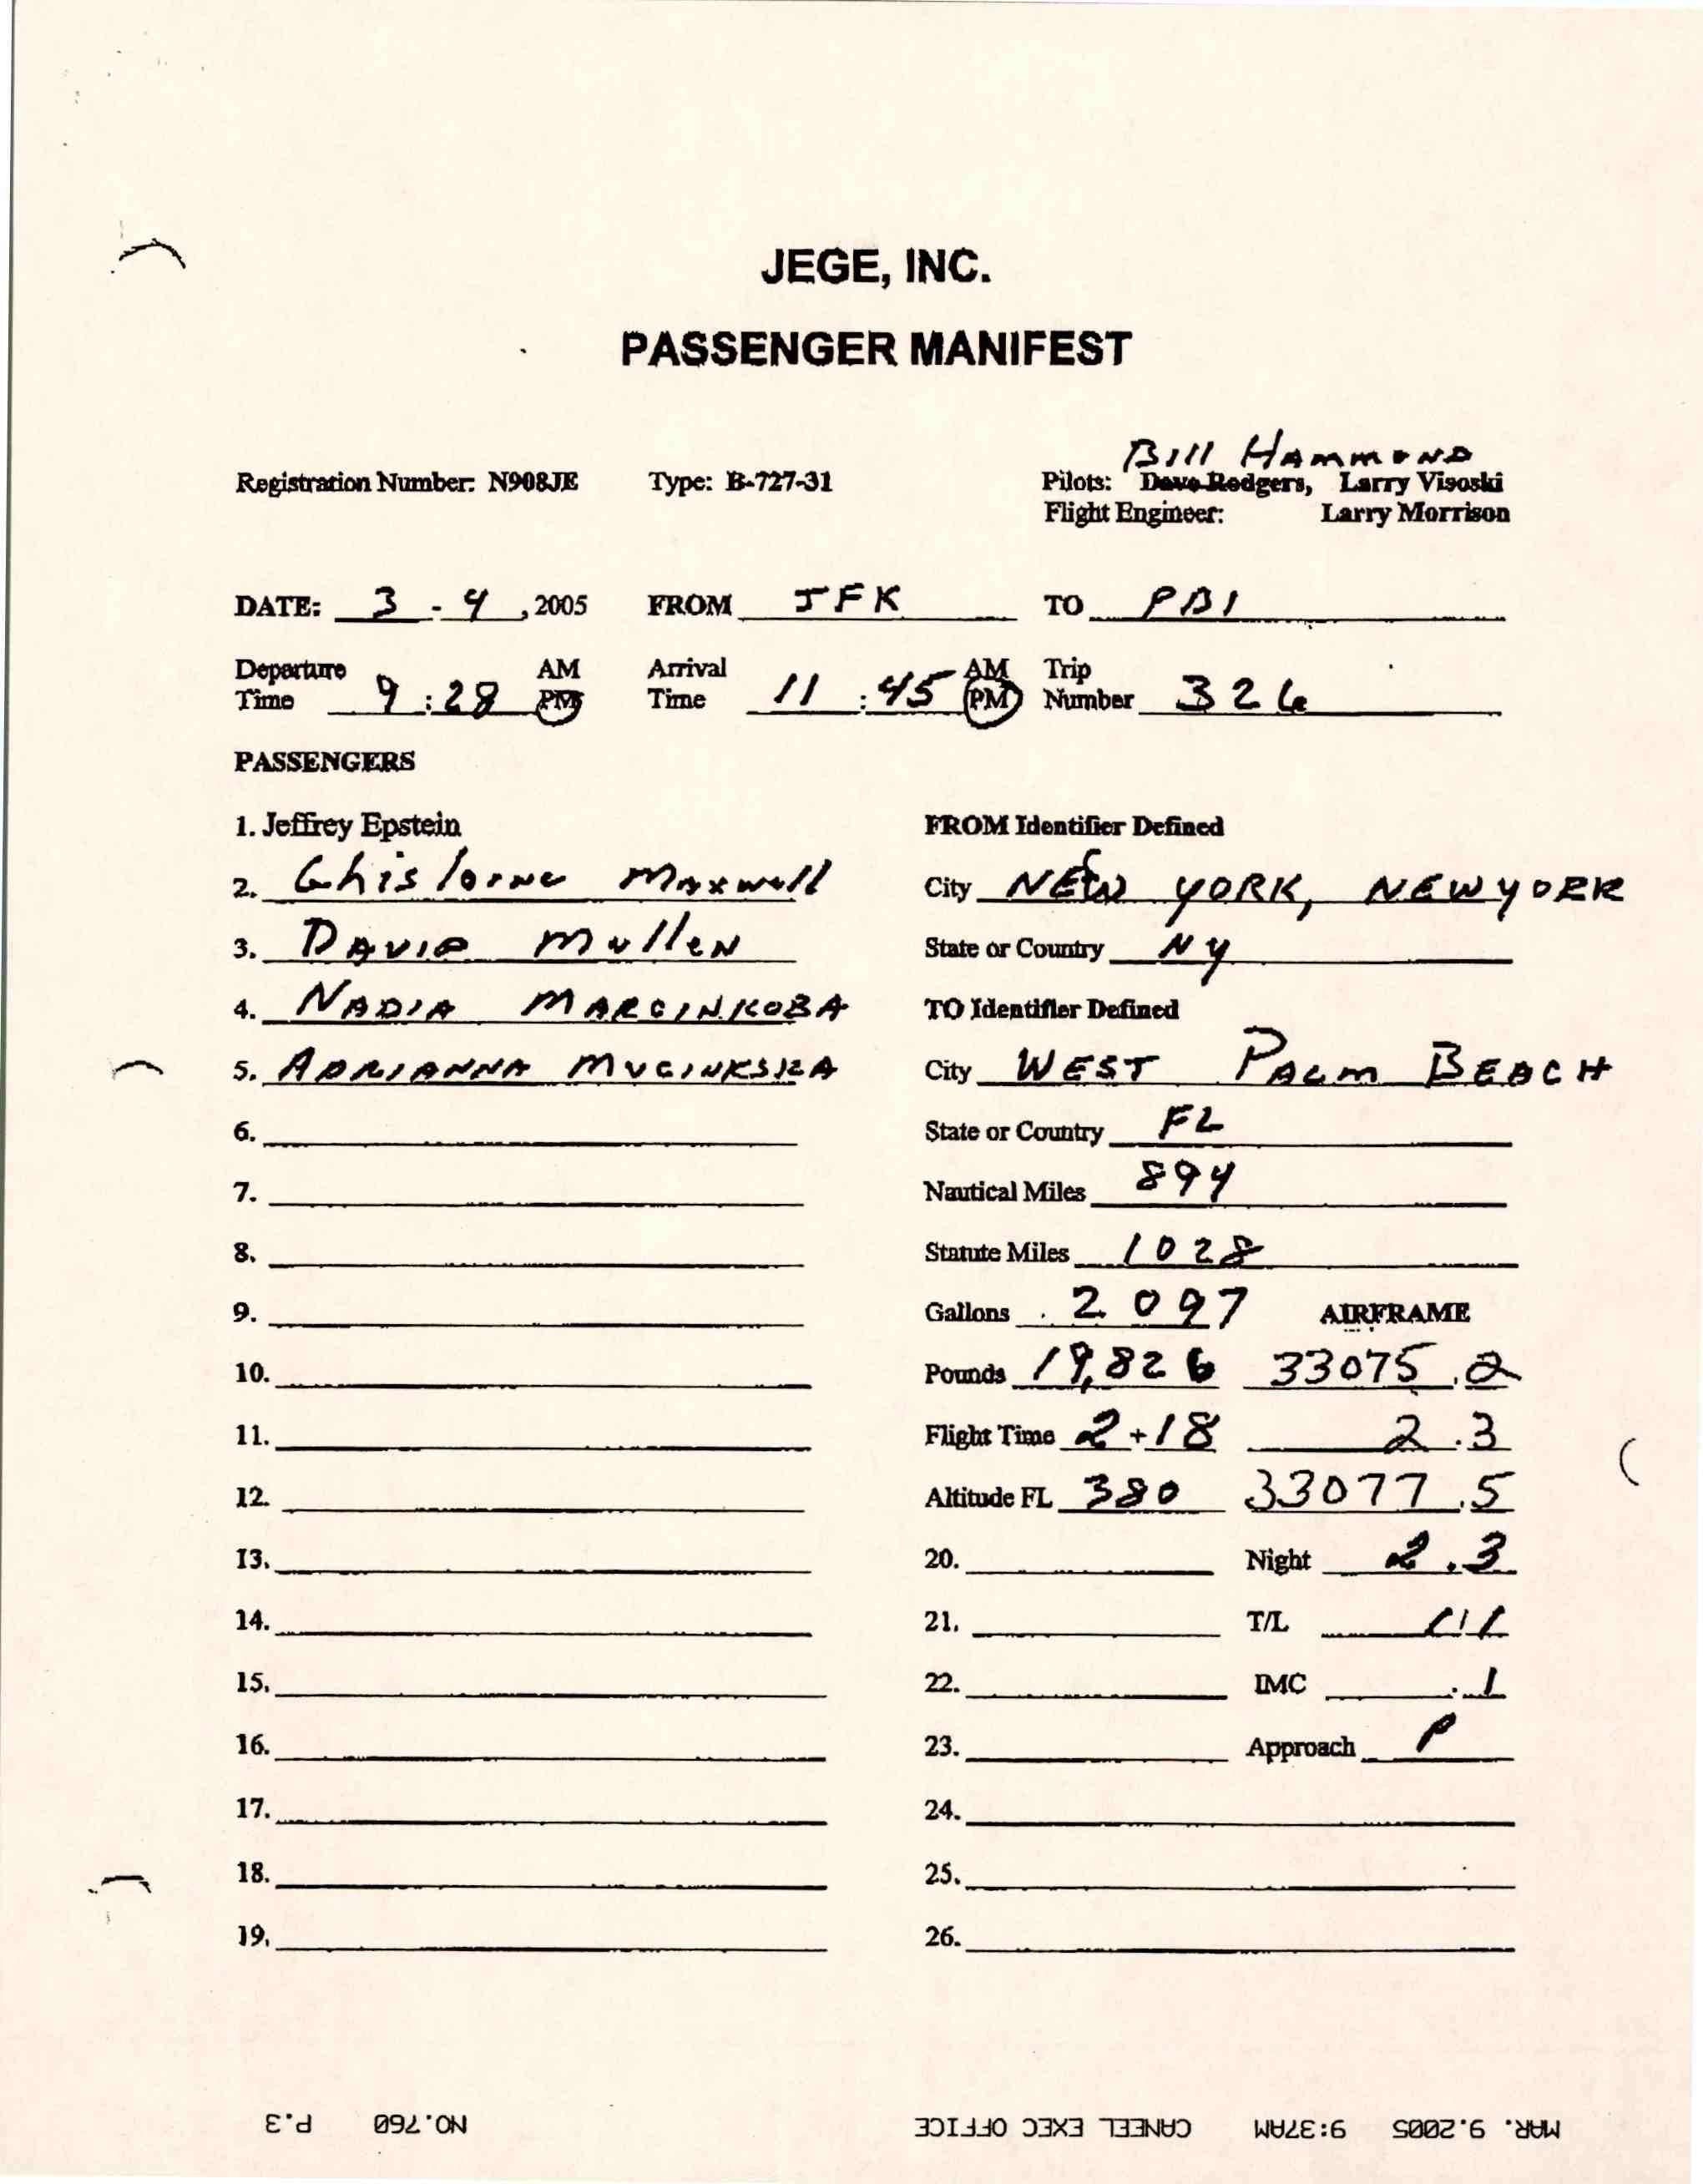 JEGE, INC.
PASSENGER MANIFEST
Bill Hammond
Registration Number: N908JE Type: B-727-31 Pilots: Dave Rodgers, Larry Visoski
Flight Engineer: Larry Morrison
DATE: 3 - 4 , 2005 FROM JFK TO PBI
Departure AM Arrival AM Trip
Time 9 : 28 PM Time 11 : 45 PM Number 326
PASSENGERS
1. Jeffrey Epstein FROM Identifier Defined
2. Ghislaine Maxwell City NEW YORK, NEW YORK
3. DAVID Mullen State or Country NY
4. NADIA MARCINKOBA TO Identifier Defined
5. ADRIANNA MUCINKSKA City WEST PALM BEACH
6. State or Country FL
7. Nautical Miles 894
8. Statute Miles 1028
9. Gallons 2097 AIRFRAME
10. Pounds 19,826 33075.2
11. Flight Time 2+18 2.3
12. Altitude FL 380 33077.5
13. 20. Night 2.3
14. 21. T/L 1/1
15. 22. IMC .1
16. 23. Approach P
17. 24.
18. 25.
19. 26.
MAR. 9.2005 9:37AM CANEEL EXEC OFFICE NO.760 P.3